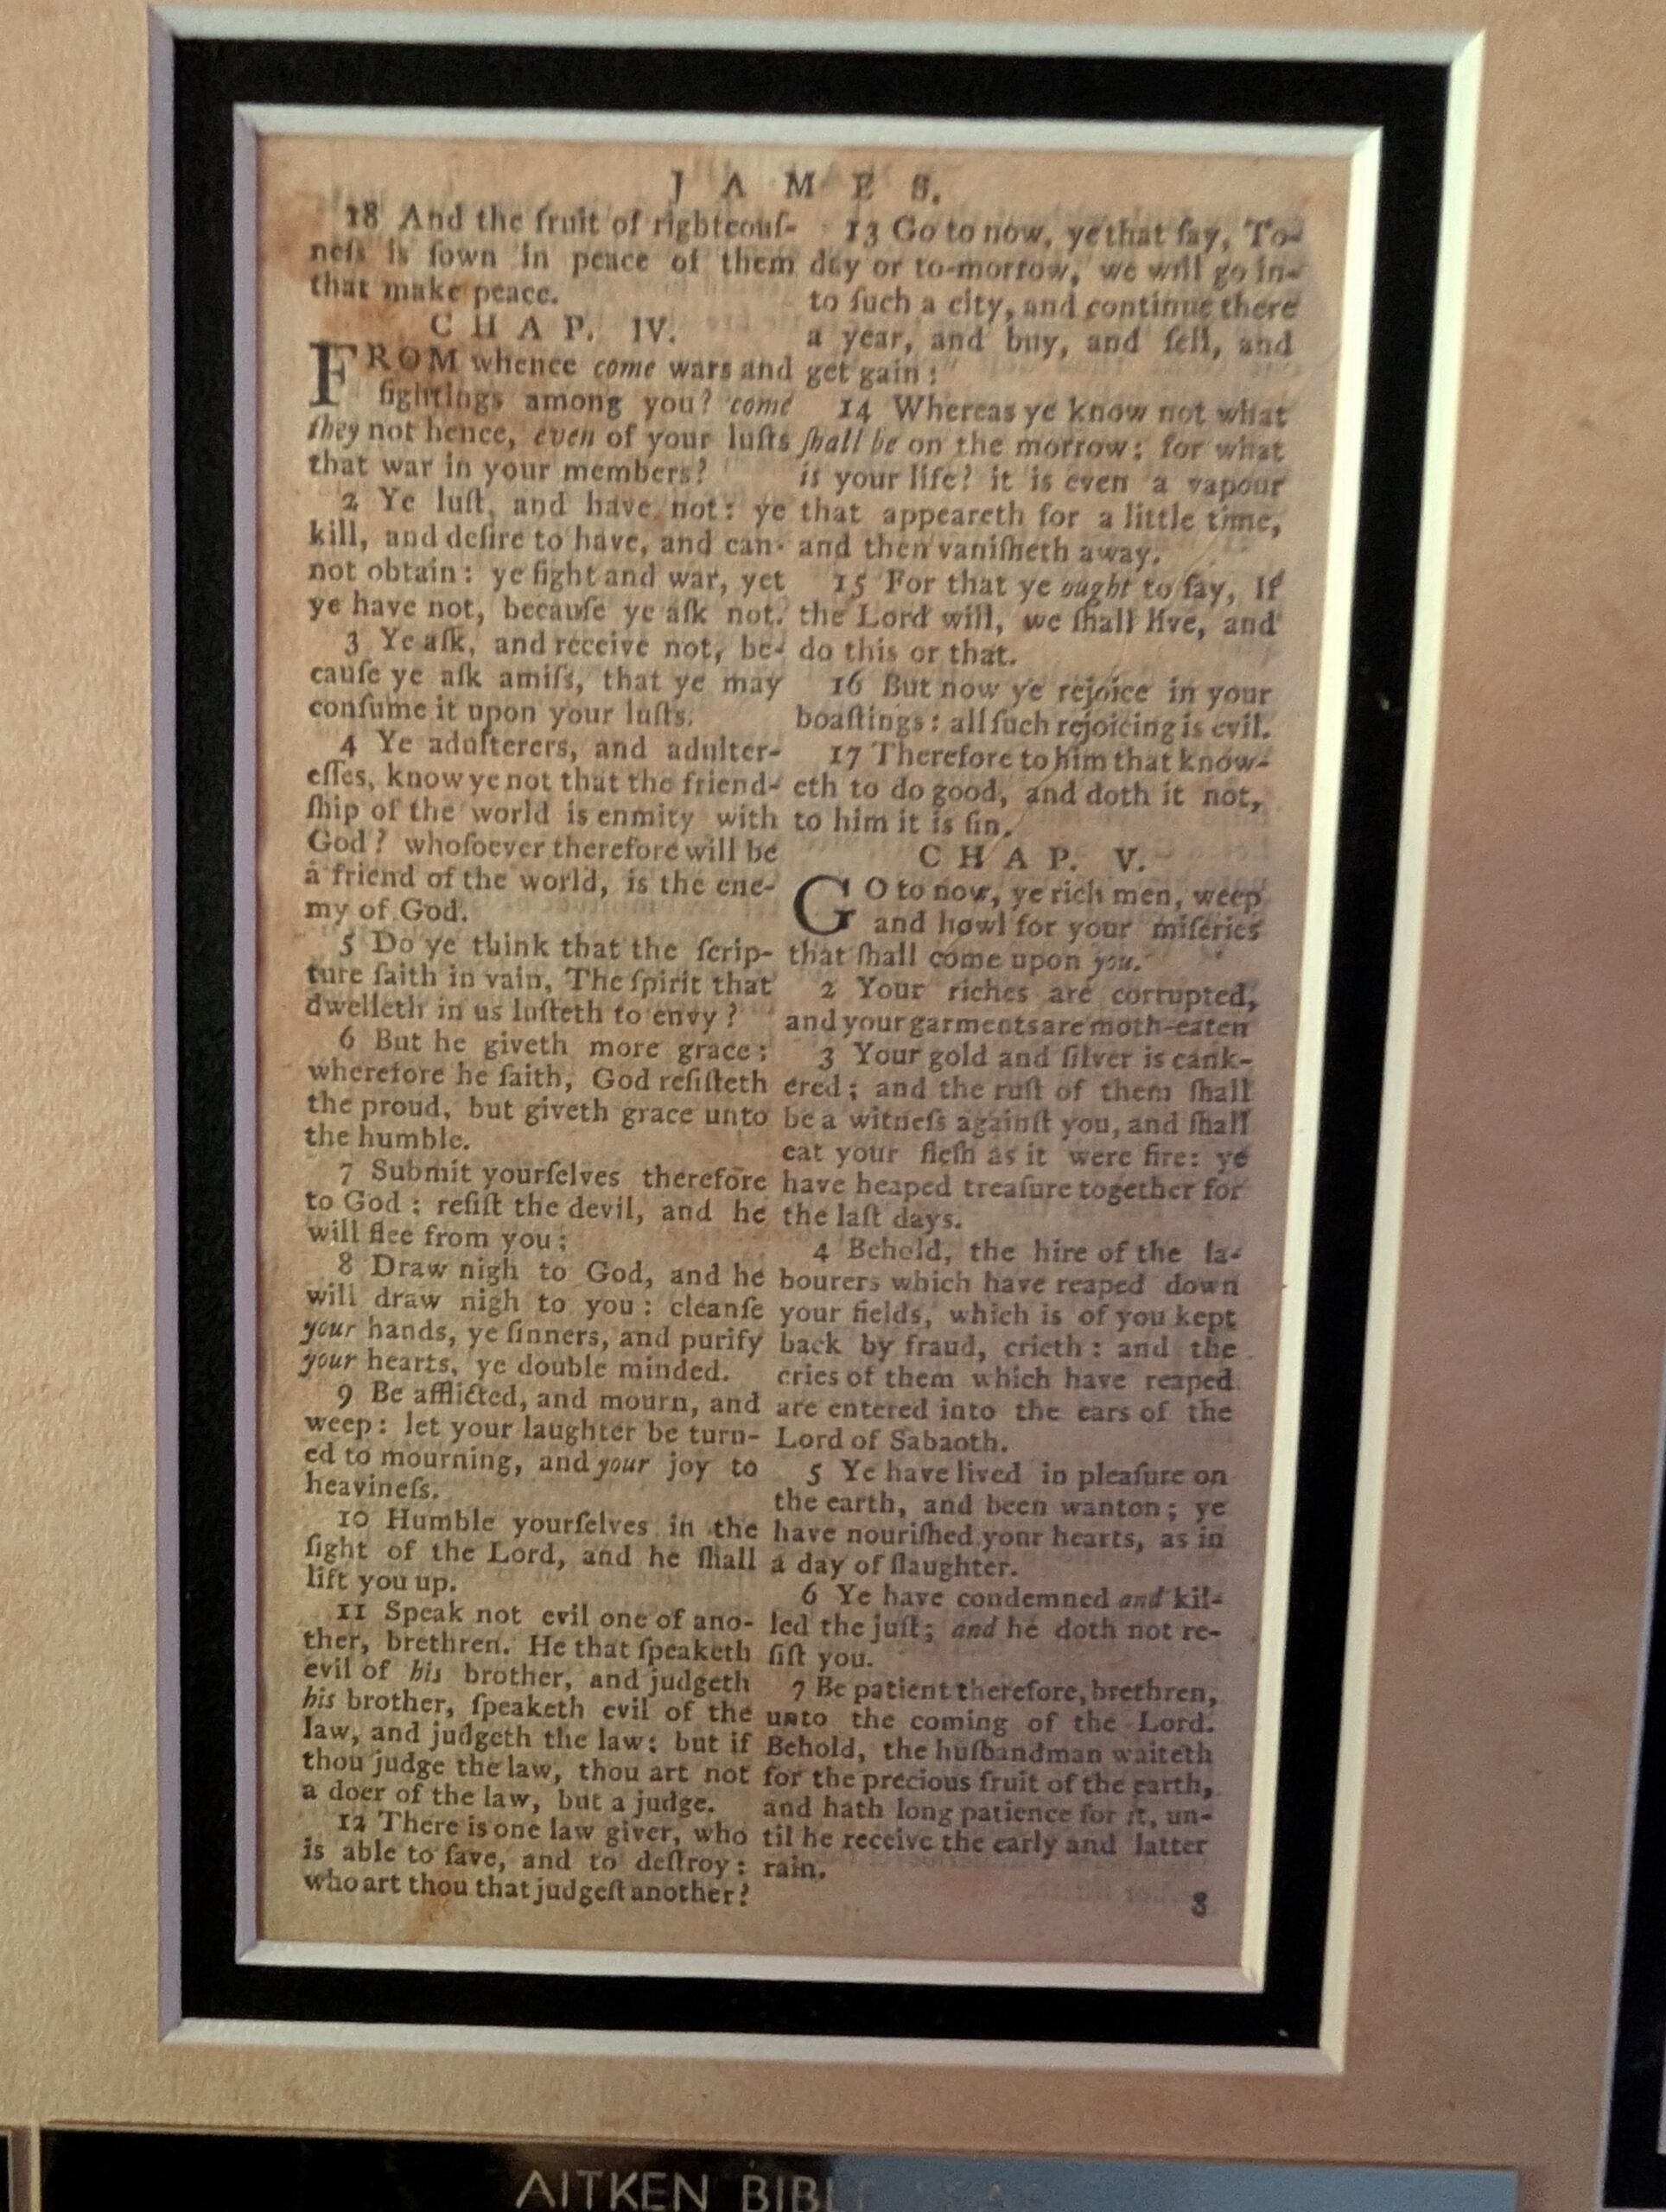 J A M E S.
18 And the fruit of righteouſ-
neſs is ſown in peace of them
that make peace.
C H A P. IV.
FROM whence come wars and
fightings among you? come
they not hence, even of your luſts
that war in your members?
2 Ye luſt, and have not: ye
kill, and deſire to have, and can-
not obtain: ye fight and war, yet
ye have not, becauſe ye aſk not.
3 Ye aſk, and receive not, be-
cauſe ye aſk amiſs, that ye may
conſume it upon your luſts.
4 Ye adulterers, and adulter-
eſſes, know ye not that the friend-
ſhip of the world is enmity with
God? whoſoever therefore will be
a friend of the world, is the ene-
my of God.
5 Do ye think that the ſcrip-
ture ſaith in vain, The ſpirit that
dwelleth in us luſteth to envy?
6 But he giveth more grace:
wherefore he ſaith, God reſiſteth
the proud, but giveth grace unto
the humble.
7 Submit yourſelves therefore
to God; reſiſt the devil, and he
will flee from you:
8 Draw nigh to God, and he
will draw nigh to you: cleanſe
your hands, ye ſinners, and purify
your hearts, ye double minded.
9 Be afflicted, and mourn, and
weep: let your laughter be turn-
ed to mourning, and your joy to
heavineſs.
10 Humble yourſelves in the
ſight of the Lord, and he ſhall
lift you up.
11 Speak not evil one of ano-
ther, brethren. He that ſpeaketh
evil of his brother, and judgeth
his brother, ſpeaketh evil of the
law, and judgeth the law: but if
thou judge the law, thou art not
a doer of the law, but a judge.
12 There is one law giver, who
is able to ſave, and to deſtroy:
who art thou that judgeſt another?
13 Go to now, ye that ſay, To-
day or to-morrow, we will go in-
to ſuch a city, and continue there
a year, and buy, and ſell, and
get gain:
14 Whereas ye know not what
ſhall be on the morrow: for what
is your life? it is even a vapour
that appeareth for a little time,
and then vaniſheth away.
15 For that ye ought to ſay, If
the Lord will, we ſhall live, and
do this or that.
16 But now ye rejoice in your
boaſtings: all ſuch rejoicing is evil.
17 Therefore to him that know-
eth to do good, and doth it not,
to him it is ſin.
C H A P. V.
GO to now, ye rich men, weep
and howl for your miſeries
that ſhall come upon you.
2 Your riches are corrupted,
and your garments are moth-eaten
3 Your gold and ſilver is cank-
ered; and the ruſt of them ſhall
be a witneſs againſt you, and ſhall
eat your fleſh as it were fire: ye
have heaped treaſure together for
the laſt days.
4 Behold, the hire of the la-
bourers which have reaped down
your fields, which is of you kept
back by fraud, crieth: and the
cries of them which have reaped
are entered into the ears of the
Lord of Sabaoth.
5 Ye have lived in pleaſure on
the earth, and been wanton; ye
have nouriſhed your hearts, as in
a day of ſlaughter.
6 Ye have condemned and kil-
led the juſt; and he doth not re-
ſiſt you.
7 Be patient therefore, brethren,
unto the coming of the Lord.
Behold, the huſbandman waiteth
for the precious fruit of the earth,
and hath long patience for it, un-
til he receive the early and latter
rain.
8
AITKEN BIBLE